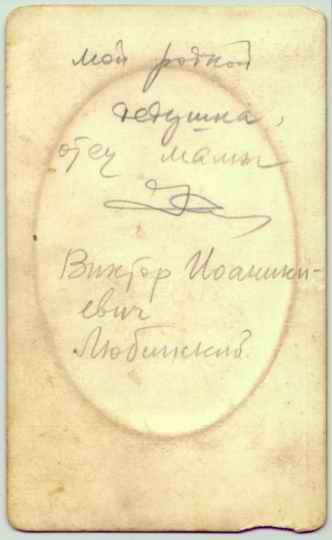 мой родной
дедушка,
отец мамы
Виктор Иоаники-
евич
Любинский